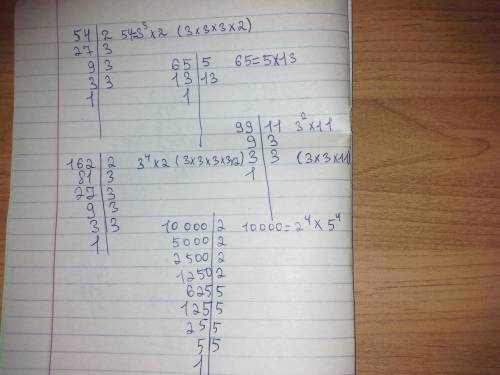 54 | 2 54=3³×2 (3×3×3×2)
27 | 3
9 | 3
3 | 3
1
65 | 5 65=5×13
13 | 13
1
99 | 11 3²×11
9 | 3
3 | 3 (3×3×11)
1
162 | 2 3⁴×2 (3×3×3×3×2)
81 | 3
27 | 3
9 | 3
3 | 3
1
10000 | 2 10000=2⁴×5⁴
5000 | 2
2500 | 2
1250 | 2
625 | 5
125 | 5
25 | 5
5 | 5
1